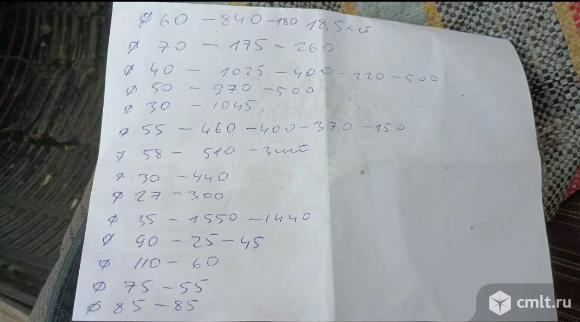 ø 60 – 840 – 180 18,5 мм
ø 70 – 175 – 260
ø 40 – 1025 – 400 – 220 – 500
ø 50 – 970 – 500
ø 30 – 1045
ø 55 – 460 – 400 – 370 – 150
ø 58 – 510 – 3шт
ø 30 – 440
ø 27 – 300
ø 35 – 1550 – 1440
ø 90 – 25 – 45
ø 110 – 60
ø 75 – 55
ø 85 – 85
cmlt.ru